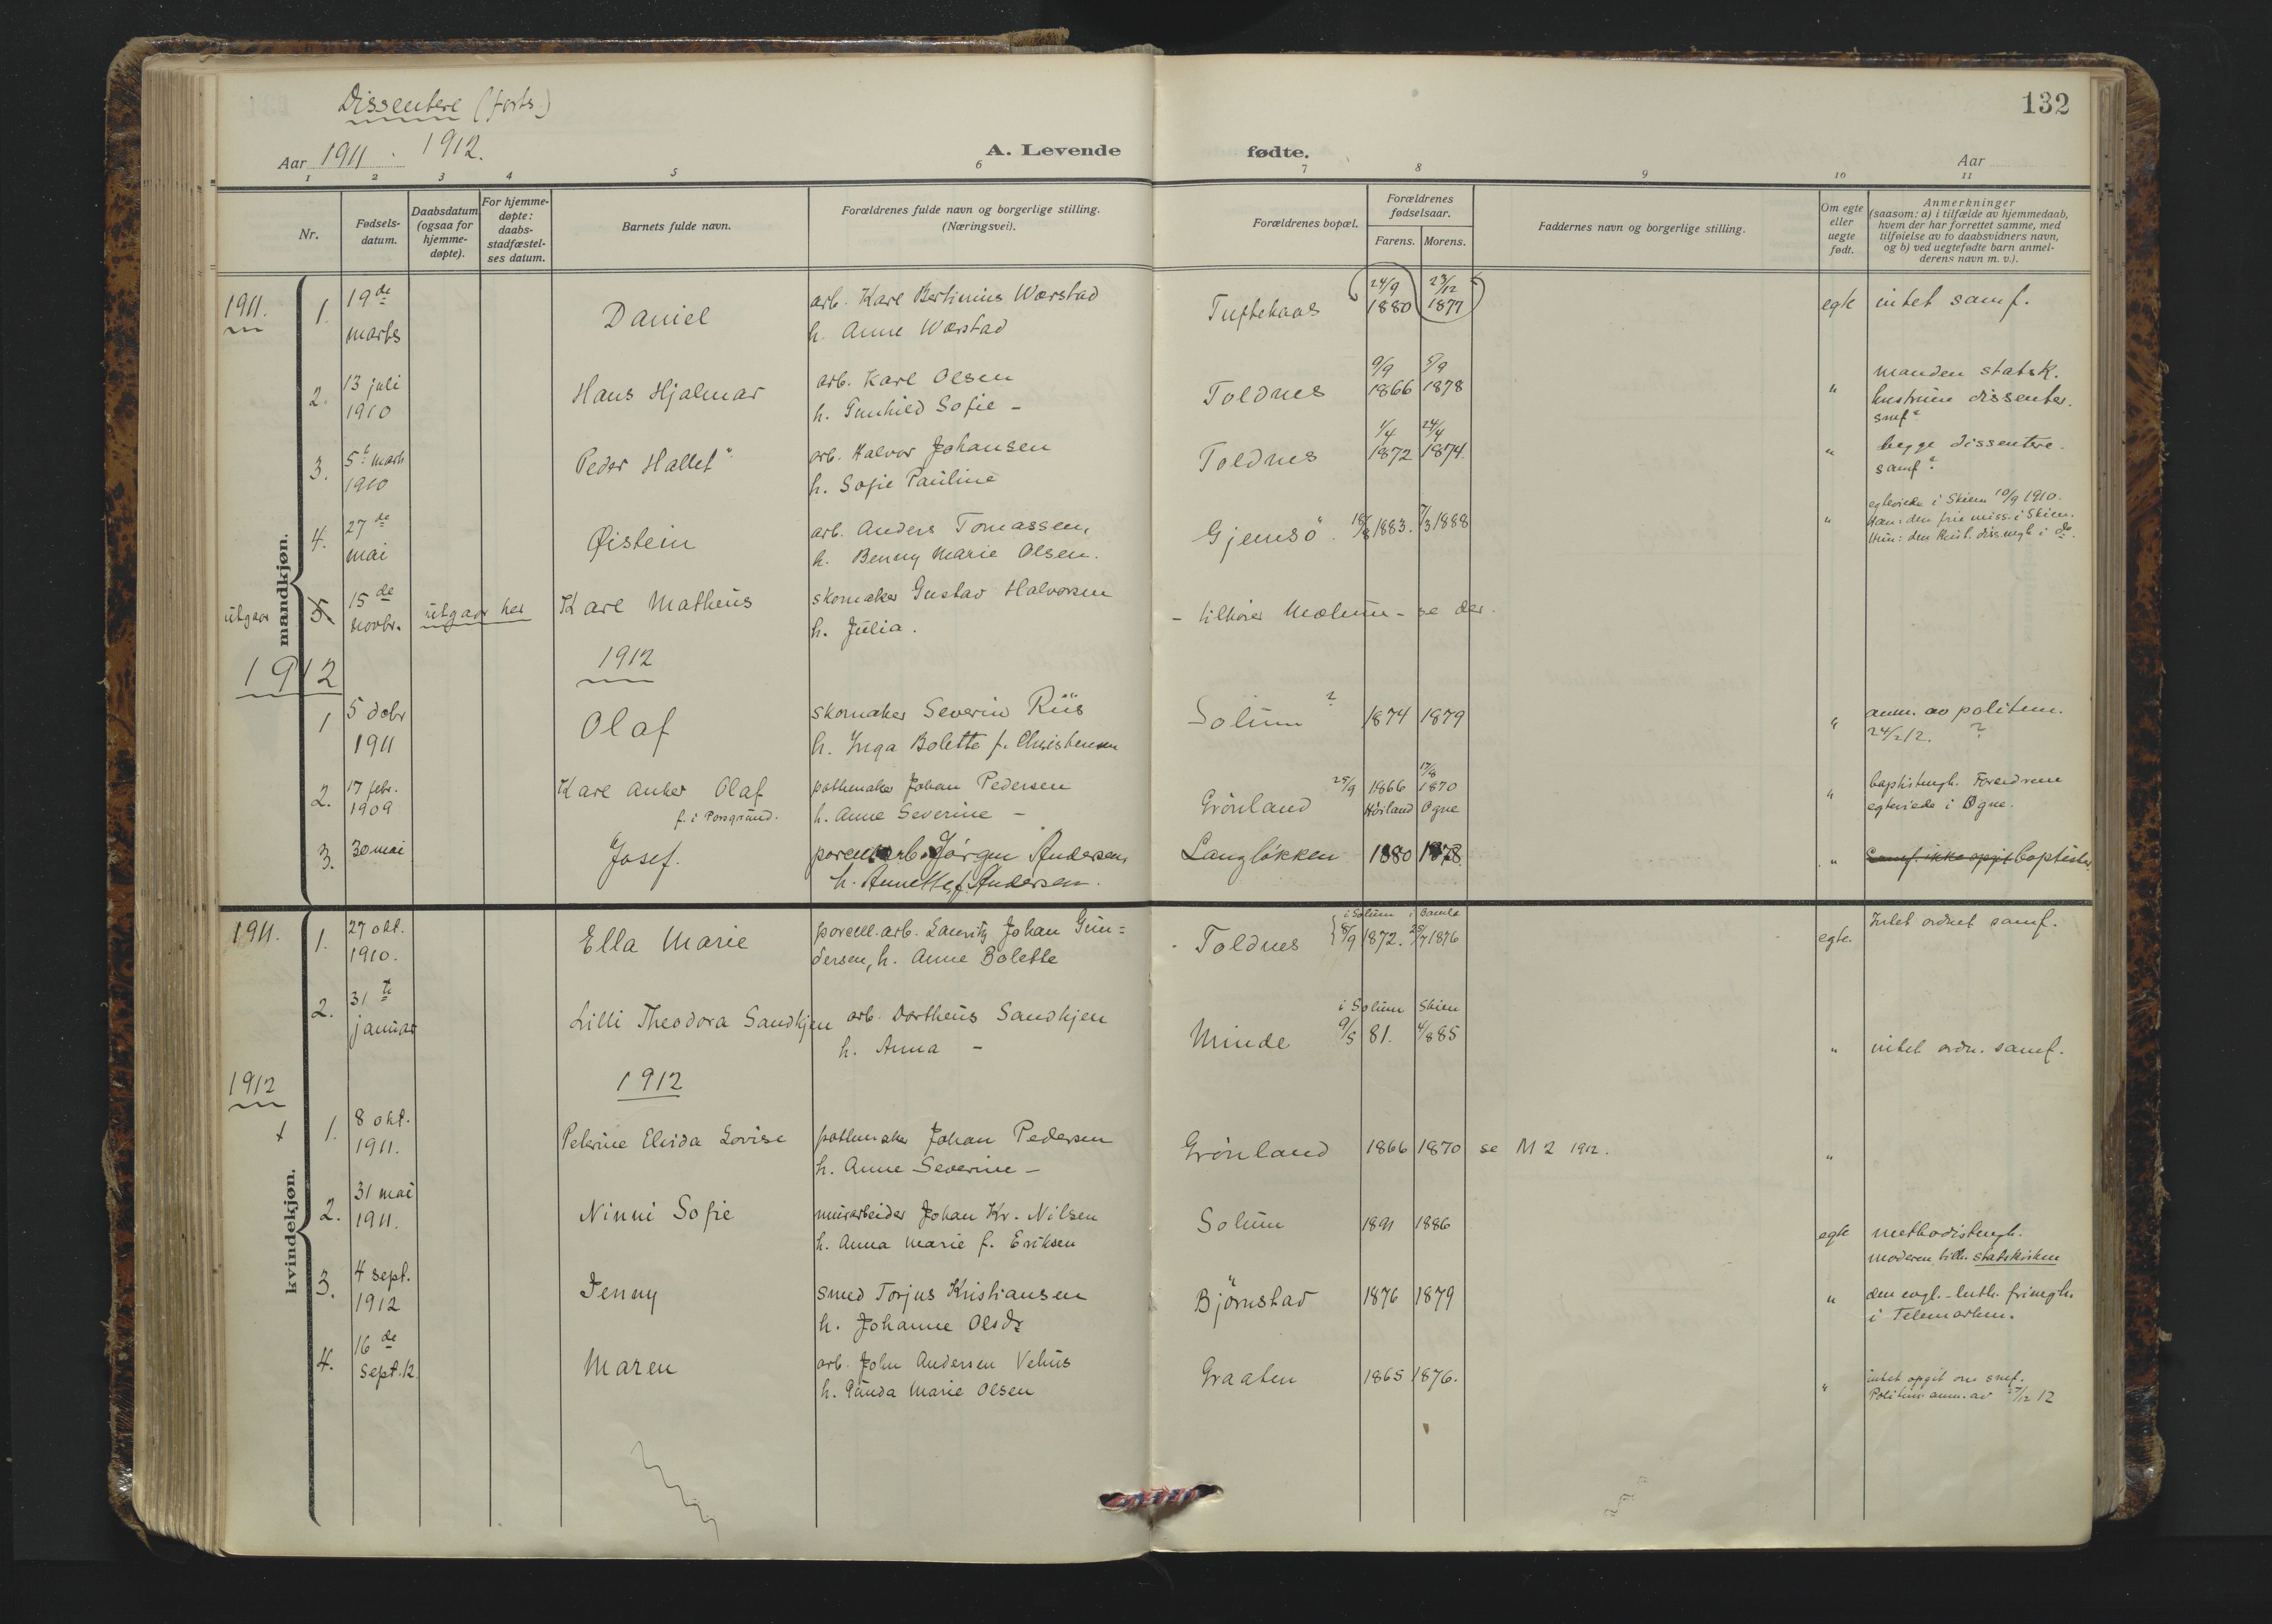 Dissentere (forts.)
Aar 1911. 1912.
A. Levende fødte.
132
Aar
1 2 3 4 5 6 7 8 9 10 11
Nr.
Fødsels-
datum.
Daabsdatum
(ogsaa for
hjemme-
døpte).
For hjemme-
døpte:
daabs-
stadfæstel-
ses datum.
Barnets fulde navn.
Forældrenes fulde navn og borgerlige stilling.
(Næringsvei).
Forældrenes bopæl.
Forældrenes
fødselsaar.
Farens. Morens.
Faddernes navn og borgerlige stilling.
Om egte
eller
uegte
født.
Anmerkninger
(saasom: a) i tilfælde av hjemmedaab,
hvem der har forrettet samme, med
tilføielse av to daabsvidners navn,
og b) ved uegtefødte barn anmel-
derens navn m. v.).
mandkjøn.
1911.
1. 19de marts Daniel arb. Karl Bertinius Worstad Tuftekaas 24/9 1880 23/12 1877 egte intet samf.
h. Anne Worstad
2. 13 juli 1910 Hans Hjalmar arb. Karl Olsen Toldnes 9/9 1866 5/9 1878 " manden statsk.
h. Gunhild Sofie - hustruen dissenter.
smf?
3. 5t marts 1910 Peder Hallet arb. Halvor Johansen Toldnes 1/4 1872 24/4 1874. " begge dissentere.
h. Sofie Pauline samf?
4. 27de mai Øistein arb. Anders Tomassen, Gjemsö. 18/8 1883. 7/3 1888 " egteviede i Skien 10/9 1910.
h. Benny Marie Olsen. Han: den frie miss. i Skien.
Hun: den Krist. diss.mgh i do.
utgaar 5 15de novbr. utgaar her Karl Matheus skomaker Gustav Halvorsen - tilhører Mælum - se der.
h. Julia.
1912 1912
1 5 dcbr 1911 Olaf skomaker Severin Riis Solum ? 1874 1879 " anm. av politim.
h. Inga Bolette f. Christensen 24/2 12. ?
2. 17 febr. 1909 Karl Anker Olaf pottemaker Johan Pedersen Grönland 25/9 1866 17/8 1870 " baptistmgh. Foreldrene
f. i Porsgrund. h. Anne Severine - Höiland Ogne egteviede i Ogne.
3. 30 mai Josef. porcel.arb. Jörgen Andersen, Langlökken 1880 1878 " Samf. ikke opgit baptister
h. Annette f. Andersen.
kvindekjøn.
1911.
1. 27 okt. 1910. Ella Marie porcell.arb. Lauritz Johan Gun= Toldnes i Solum 8/9 1872. i Bamle 25/7 1876 egte. Intet ordnet samf.
dersen, h. Anne Bolette
2. 31te januar Lilli Theodora Sandkjen arb. Dortheus Sandkjen Minde i Solum 9/5 81. Skien 4/8 85 " intet ordn. samf.
h. Anna -
1912 1912
1. 8 okt. 1911. Peterine Elvida Lovise pottemaker Johan Pedersen Grönland 1866 1870 se M 2 1912. "
h. Anne Severine -
2. 31 mai 1911. Ninni Sofie murarbeider Johan Kr. Nilsen Solum 1891 1886 egte methodistmgh.
h. Anna Marie f. Eriksen moderen tilh. statskirken
3. 4 sept. 1912 Jenny smed Torjus Kristiansen Björnstad 1876 1879 " den evgl.-luth. frimgh.
h. Johanne Olsdr i Telemarken.
4. 16de Sept. 12 Maren arb. John Andersen Vehus Graaten 1865 1876. " intet opgit om smf.
h. Gunda Marie Olsen Politim. anm. av 17/12 12